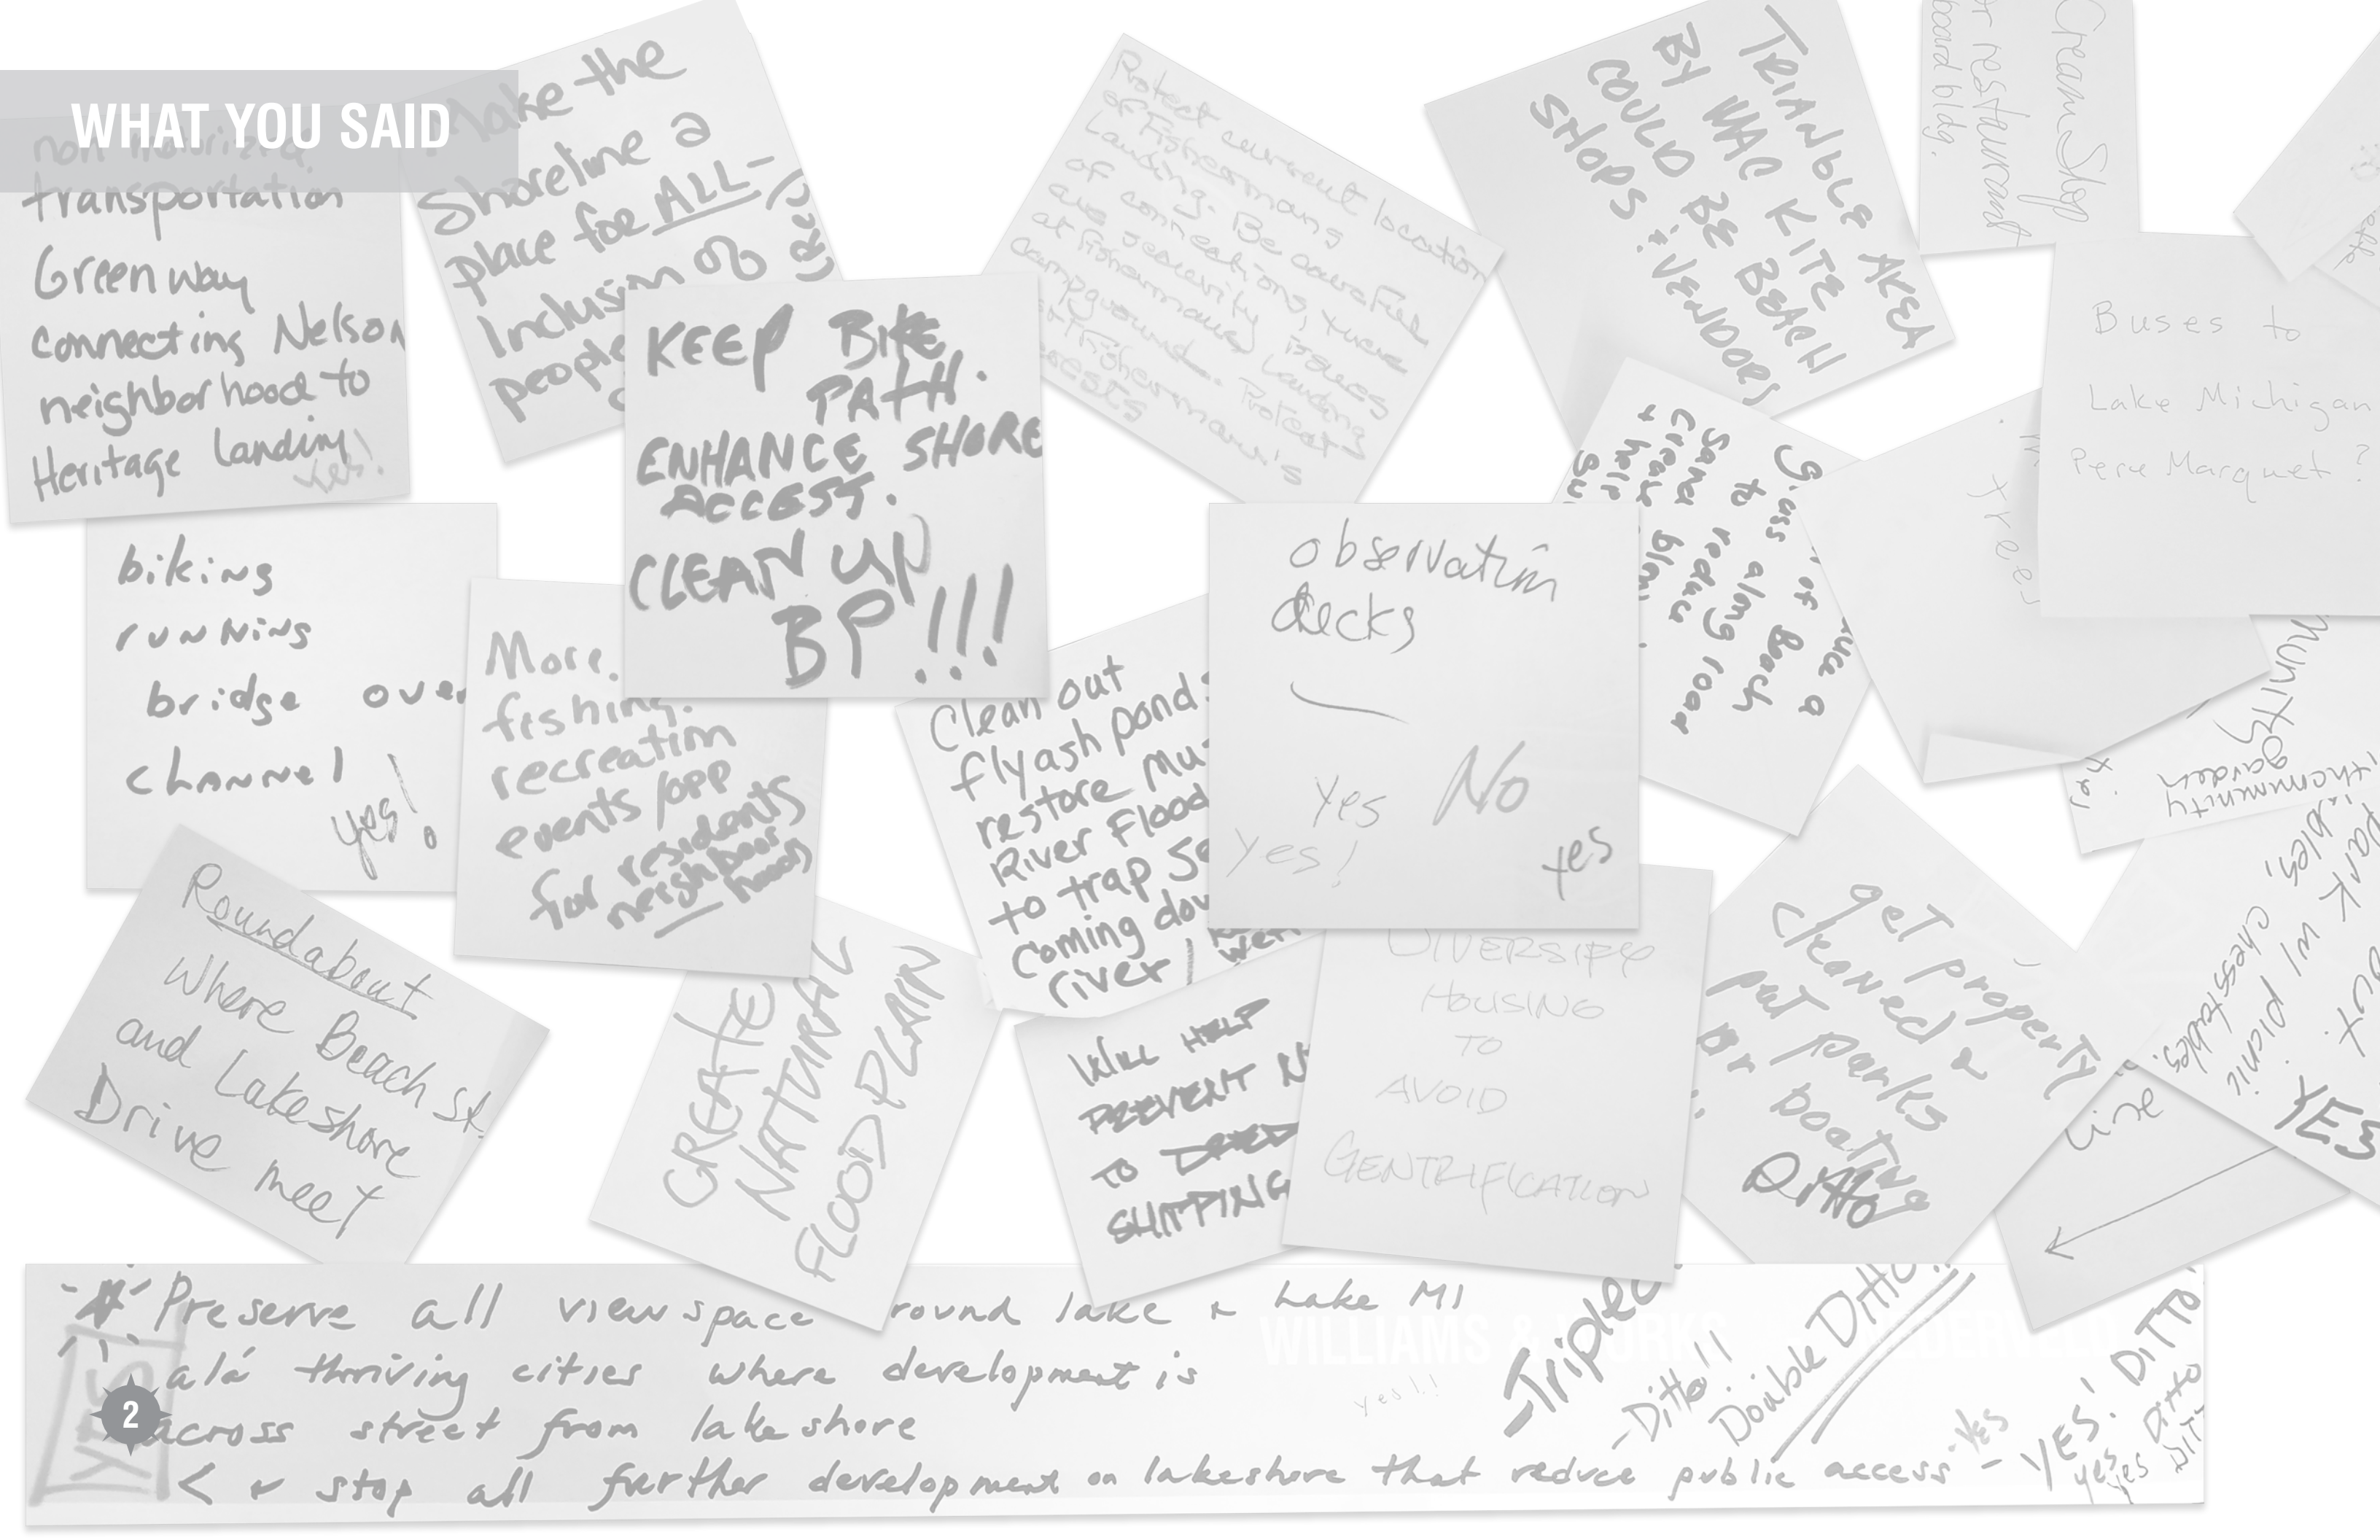 WHAT YOU SAID
non motorized
transportation
Greenway
connecting Nelson
neighborhood to
Heritage Landing
Yes!
Make the
Shoreline a
place for ALL-
Inclusion of
people
KEEP BIKE
PATH.
ENHANCE SHORE
ACCESS.
CLEAN UP
BP!!!
Protect current location
of Fisherman's
Landing. Be careful
of connections, there
are security issues
at Fisherman's Landing
Campground. Protect
Fisherman's
TRIANGLE AREA
BY MAC KITE
COULD BE BEACH
SHOPS & VENDORS
Cream Shop
or restaurant
board bldg.
Buses to
Lake Michigan
Pere Marquet?
biking
running
bridge over
channel
yes!
More
fishing
recreation
events/opp
for residents
neighbor
hoods
Clean out
flyash pond
restore Mu
River Flood
to trap Se
coming dow
river
observation
decks
yes No
yes! yes
Grass or
to along Beach
same reduce road
create blow
& help
trees
community
garden
Roundabout
where Beach St.
and Lakeshore
Drive meet
CREATE
NATURAL
FLOOD PLAIN
WILL HELP
PREVENT N
TO DRED
SHIPPING
DIVERSIFY
HOUSING
TO
AVOID
GENTRIFICATION
get property
cleaned &
put parks
or boating
Ditto
park w/ picnic
chess tables.
YES
line
Preserve all view space round lake & Lake MI
alá thriving cities where development is
across street from lakeshore
< & stop all further development on lakeshore that reduce public access
YES
yes!!
-Triple
-Ditto!!
Double Ditto!!
-Yes
- YES! DITTO
yes Ditto
yes DIT
WILLIAMS & WORKS
2